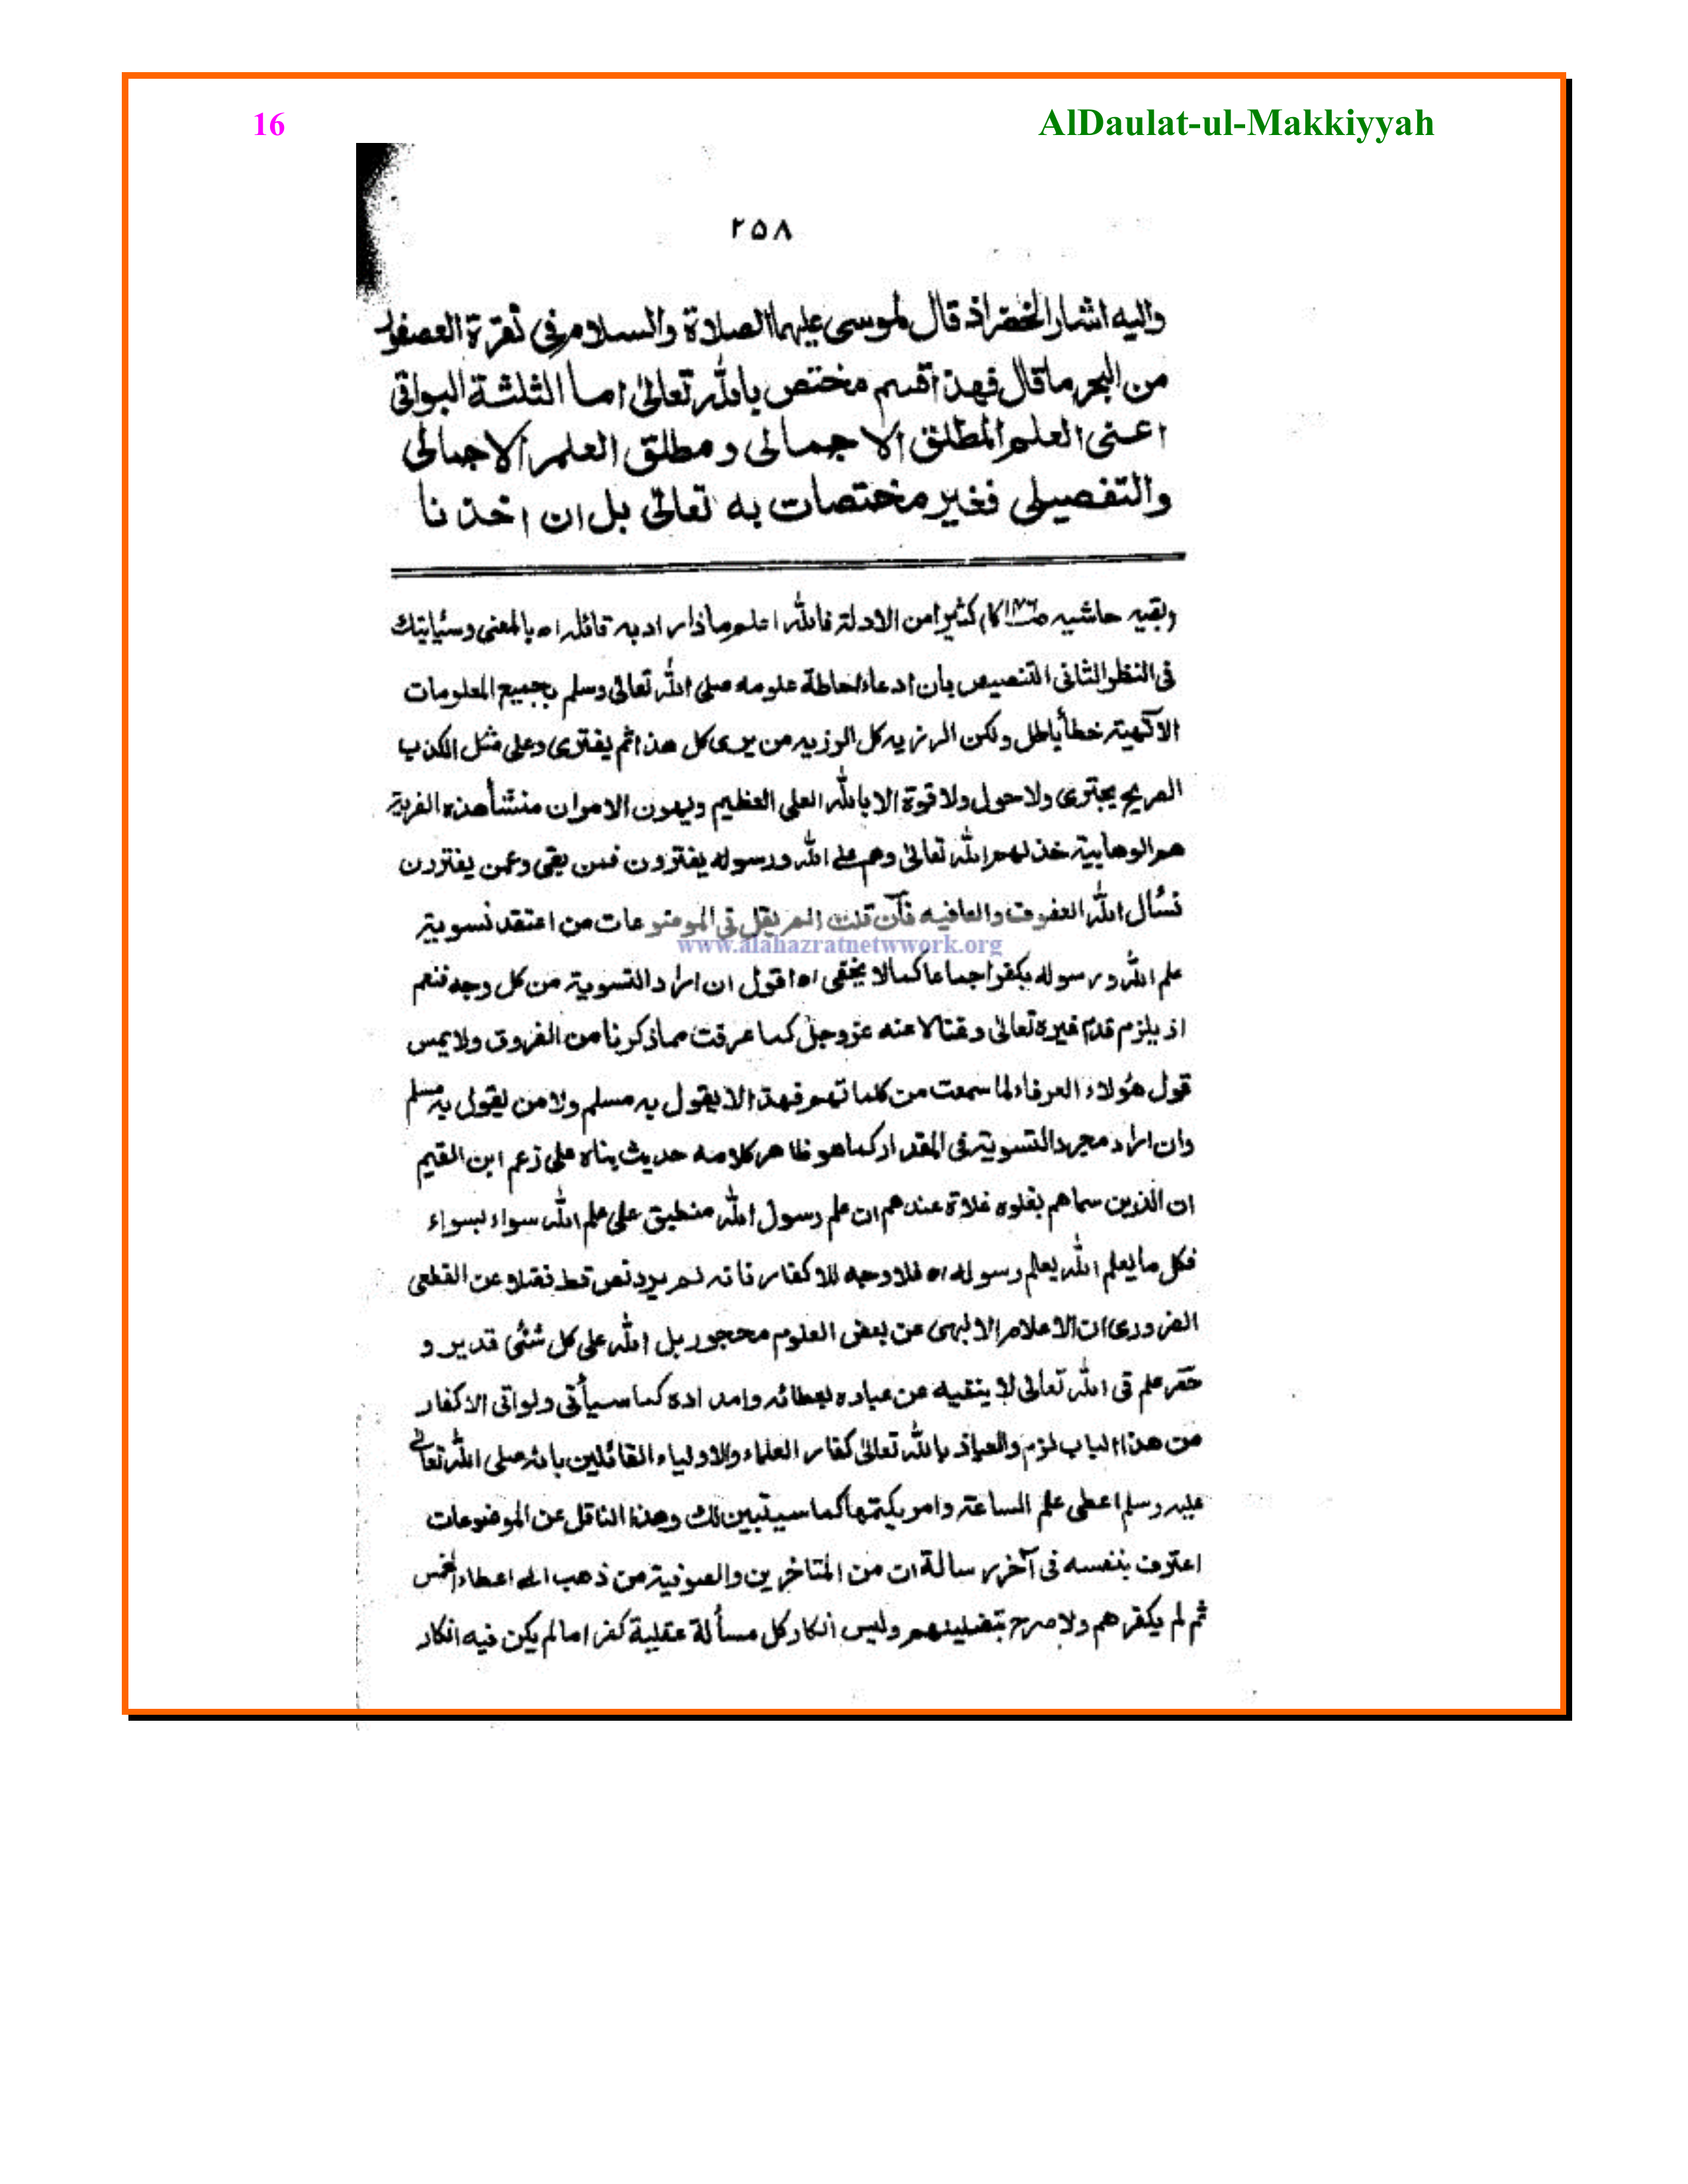 16
AlDaulat-ul-Makkiyyah
٢٥٨
واليه اشار الخضر اذ قال لموسى عليهما الصلاة والسلام فى نقرة العصفور
من البحر ما قال فهذا قسم مختص بالله تعالىٰ اما الثلثة البواقى
اعنى العلم المطلق الاجمالى و مطلق العلم الاجمالى
والتفصيلى فغير مختصات به تعالىٰ بل ان اخذنا
(بقيه حاشيه كثيرا من الادلة فالله اعلم ماذا اراد به قائله اه بالمعنى وسيأيتك
فى النظر الثانى التنصيص بان ادعاء احاطة علومه صلى الله تعالىٰ وسلم بجميع المعلومات
الالٰهية خطأ باطل ولكن الرزيه كل الرزيه من يرى كل هذا ثم يفترى وعلى مثل الكذب
الصريح يجترى ولا حول ولا قوة الا بالله العلى العظيم ويهون الامر ان منشأ هذه الفرية
هم الوهابية خذلهم الله تعالىٰ وهم على الله ورسوله يفترون فمن بقى وعمن يفترون
نسٔال الله العفو والعافيه فان قلت الم يقل فى الموضوعات من اعتقد تسوية
علم الله ورسوله يكفر اجماعا كما لا يخفى اه اقول ان اراد التسوية من كل وجه فنعم
اذ يلزم قدم غيره تعالىٰ وغناؤه عنه عزوجل كما عرفت مما ذكرنا من الفروق ولا يمس
قول هٰؤلاء العرفاء لما سمعت من كلماتهم فهذا لا يقول به مسلم ولا من يقول به مسلم
وان اراد مجرد التسوية فى المقدار كما هو ظاهر كلامه حديث بناه على زعم ابن القيم
ان الذين سماهم بغلوه غلاة عندهم ان علم رسول الله منطبق على علم الله سواء بسواء
فكل ما يعلم الله يعلم رسوله اه فلا وجه للاكفار فانه لم يرد نص قط فضلا عن القطعى
الضرورى ان الاعلام الالٰهى عن بعض العلوم محجور بل الله على كل شئى قدير و
علم فى الله تعالىٰ لا ينفيه عن عباده بعطائه وامداده كما سيأتى ولو اتى الاكفار
من هذا الباب لزم والعياذ بالله تعالىٰ كفار العلماء والاولياء القائلين بانه صلى الله تعالىٰ
عليه وسلم اعطى علم الساعة وامر بكتمها كما سيتبين لك وهذا الناقل عن الموضوعات
اعترف بنفسه فى آخر رسالة ان من المتاخرين والصوفية من ذهب الى اعطاء الخمس
ثم لم يكفرهم ولا صرح بتضليلهم وليس انكار كل مسألة عقلية كفرا ما لم يكن فيه انكار
www.alahazratnetwwork.org